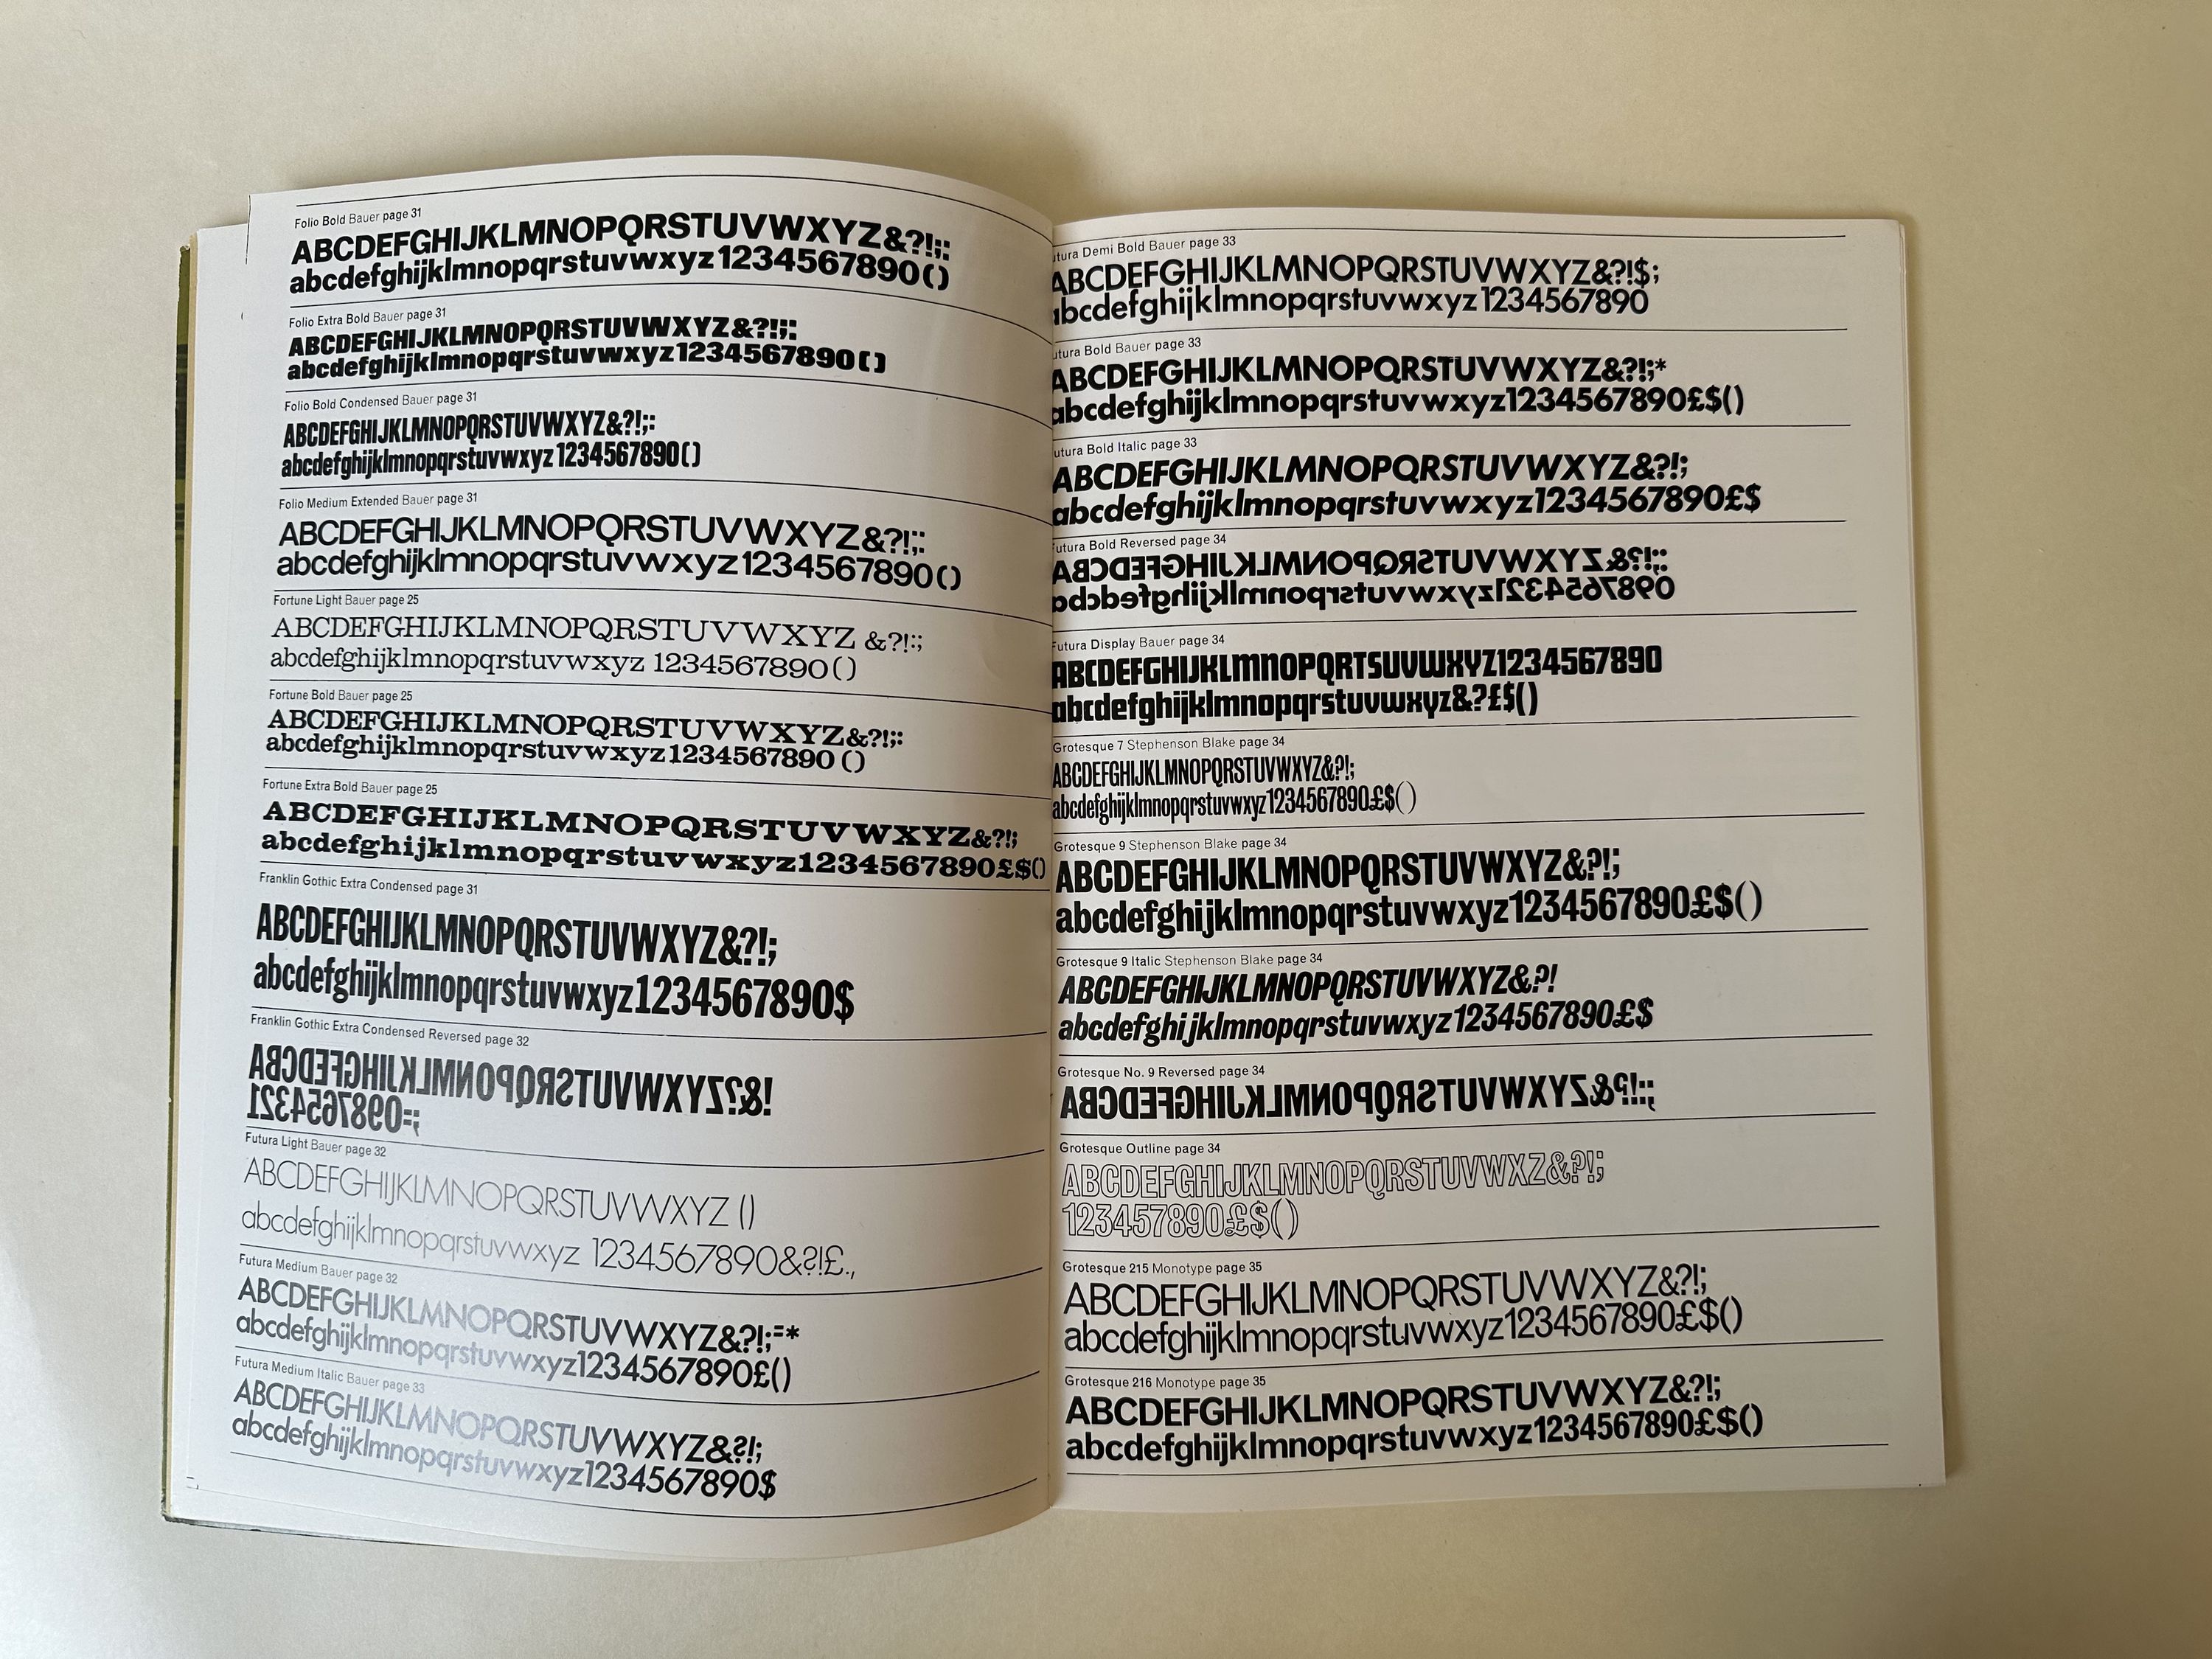 Folio Bold Bauer page 31
ABCDEFGHIJKLMNOPQRSTUVWXYZ&?!;:
abcdefghijklmnopqrstuvwxyz1234567890()
Folio Extra Bold Bauer page 31
ABCDEFGHIJKLMNOPQRSTUVWXYZ&?!;:
abcdefghijklmnopqrstuvwxyz1234567890()
Folio Bold Condensed Bauer page 31
ABCDEFGHIJKLMNOPQRSTUVWXYZ&?!;:
abcdefghijklmnopqrstuvwxyz1234567890()
Folio Medium Extended Bauer page 31
ABCDEFGHIJKLMNOPQRSTUVWXYZ&?!;:
abcdefghijklmnopqrstuvwxyz1234567890()
Fortune Light Bauer page 25
ABCDEFGHIJKLMNOPQRSTUVWXYZ &?!:;
abcdefghijklmnopqrstuvwxyz 1234567890()
Fortune Bold Bauer page 25
ABCDEFGHIJKLMNOPQRSTUVWXYZ&?!;:
abcdefghijklmnopqrstuvwxyz1234567890 ()
Fortune Extra Bold Bauer page 25
ABCDEFGHIJKLMNOPQRSTUVWXYZ&?!;
abcdefghijklmnopqrstuvwxyz1234567890£$()
Franklin Gothic Extra Condensed page 31
ABCDEFGHIJKLMNOPQRSTUVWXYZ&?!;
abcdefghijklmnopqrstuvwxyz1234567890$
Franklin Gothic Extra Condensed Reversed page 32
ABCDEFGHIJKLMNOPQRSTUVWXYZ?&!
1234567890=;
Futura Light Bauer page 32
ABCDEFGHIJKLMNOPQRSTUVWXYZ ()
abcdefghijklmnopqrstuvwxyz 1234567890&?!£.,
Futura Medium Bauer page 32
ABCDEFGHIJKLMNOPQRSTUVWXYZ&?!;=*
abcdefghijklmnopqrstuvwxyz1234567890£()
Futura Medium Italic Bauer page 33
ABCDEFGHIJKLMNOPQRSTUVWXYZ&?!;
abcdefghijklmnopqrstuvwxyz1234567890$
utura Demi Bold Bauer page 33
ABCDEFGHIJKLMNOPQRSTUVWXYZ&?!$;
abcdefghijklmnopqrstuvwxyz1234567890
utura Bold Bauer page 33
ABCDEFGHIJKLMNOPQRSTUVWXYZ&?!;*
abcdefghijklmnopqrstuvwxyz1234567890£$()
utura Bold Italic page 33
ABCDEFGHIJKLMNOPQRSTUVWXYZ&?!;
abcdefghijklmnopqrstuvwxyz1234567890£$
Futura Bold Reversed page 34
ABCDEFGHIJKLMNOPQRSTUVWXYZ&?!;:
abcdefghijklmnopqrstuvwxyz1234567890
Futura Display Bauer page 34
ABCDEFGHIJKLMNOPQRTSUVWXYZ1234567890
abcdefghijklmnopqrstuvwxyz&?£$()
Grotesque 7 Stephenson Blake page 34
ABCDEFGHIJKLMNOPQRSTUVWXYZ&?!;
abcdefghijklmnopqrstuvwxyz1234567890£$()
Grotesque 9 Stephenson Blake page 34
ABCDEFGHIJKLMNOPQRSTUVWXYZ&?!;
abcdefghijklmnopqrstuvwxyz1234567890£$()
Grotesque 9 Italic Stephenson Blake page 34
ABCDEFGHIJKLMNOPQRSTUVWXYZ&?!
abcdefghijklmnopqrstuvwxyz1234567890£$
Grotesque No. 9 Reversed page 34
ABCDEFGHIJKLMNOPQRSTUVWXYZ&?!:;
Grotesque Outline page 34
ABCDEFGHIJKLMNOPQRSTUVWXZ&?!;
123457890£$()
Grotesque 215 Monotype page 35
ABCDEFGHIJKLMNOPQRSTUVWXYZ&?!;
abcdefghijklmnopqrstuvwxyz1234567890£$()
Grotesque 216 Monotype page 35
ABCDEFGHIJKLMNOPQRSTUVWXYZ&?!;
abcdefghijklmnopqrstuvwxyz1234567890£$()